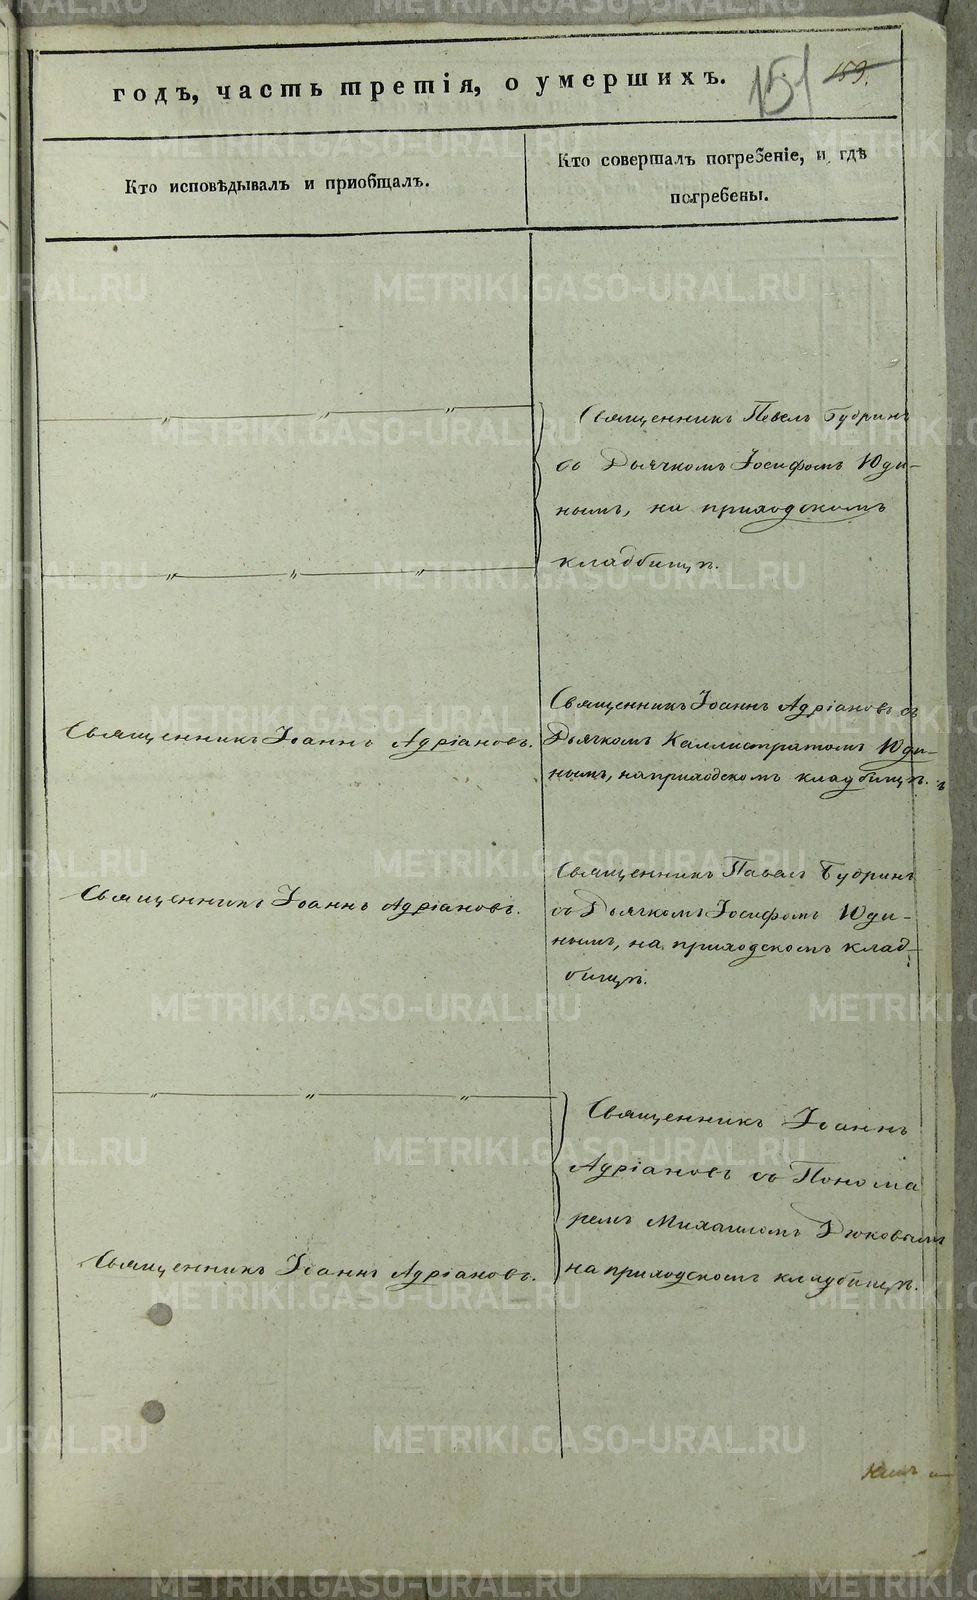 годъ, часть третія, о умершихъ.
151 159.
Кто исповѣдывалъ и пріобщалъ.
Кто совершалъ погребеніе, и гдѣ
погребены.
Священникъ Павелъ Бубринъ
съ Дьячкомъ Іосифомъ Юди-
нымъ, на приходскомъ
кладбищѣ.
Священникъ Іоаннъ Адріановъ.
Священникъ Іоаннъ Адріановъ съ
Дьячкомъ Каллистратомъ Юди-
нымъ, на приходскомъ кладбищѣ.
Священникъ Іоаннъ Адріановъ.
Священникъ Павелъ Бубринъ
съ Дьячкомъ Іосифомъ Юди-
нымъ, на приходскомъ клад-
бищѣ.
Священникъ Іоаннъ Адріановъ.
Священникъ Іоаннъ
Адріановъ съ Понома
ремъ Михаиломъ Дюковымъ
на приходскомъ кладбищѣ.
METRIKI.GASO-URAL.RU